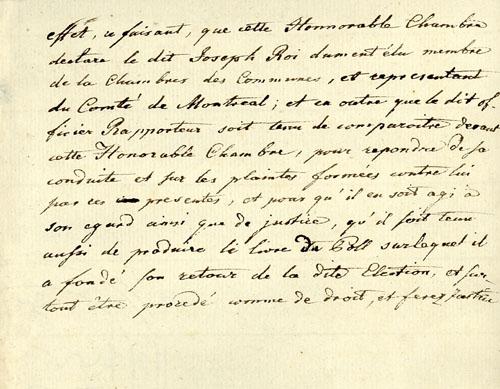 effet, ce faisant, que cette Honnorable Chambre
declare le dit Joseph Roi dument élu membre
de la Chambres des Communes, et representant
du Comté de Montreal; et en outre que le dit of
ficier Rapporteur soit tenu de comparoitre devant
cette Honorable Chambre, pour repondre de sa
conduite et sur les plaintes formees contre lui
par ces presentes, et pour qu'il en soit agi a
son egard ainsi que de justice, qu'il soit tenu
aussi de produire le livre du Poll sur lequel il
a fondé son retour de la dite Election, et sur
tout être procedé comme de droit, et ferez justice